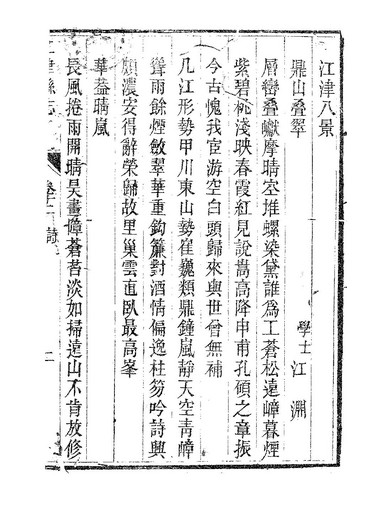 江津八景
學士江淵
鼎山叠翠
層巒叠巘摩晴空堆螺染黛誰為工蒼松遠嶂暮煙
紫碧桃淺映春霞紅見說嵩高降申甫孔碩之章振
今古愧我宦游空白頭歸來與世曾無補
几江形勢甲川東山勢崔巍類鼎鐘嵐靜天空青嶂
聳雨餘煙斂翠華重鈎簾對酒情偏逸柱笏吟詩興
頗濃安得辭榮歸故里巢雲直臥最高峯
華葢晴嵐
長風捲雨開晴昊畫嶂蒼苔淡如掃遠山不肯放修
津縣志
卷十二 詩
二